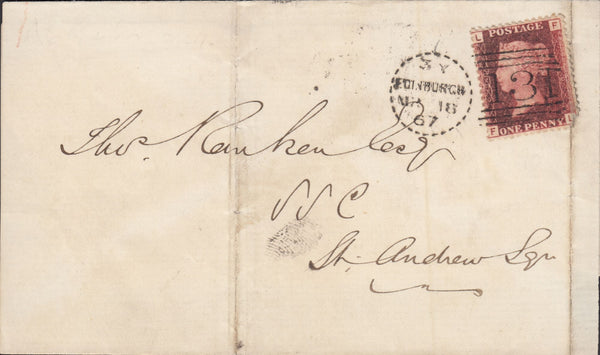 L POSTAGE F
3 Y
EDINBURGH
18
67
131
F ONE PENNY L
Thos. Ranken Esq
SSC
St. Andrew Sqr